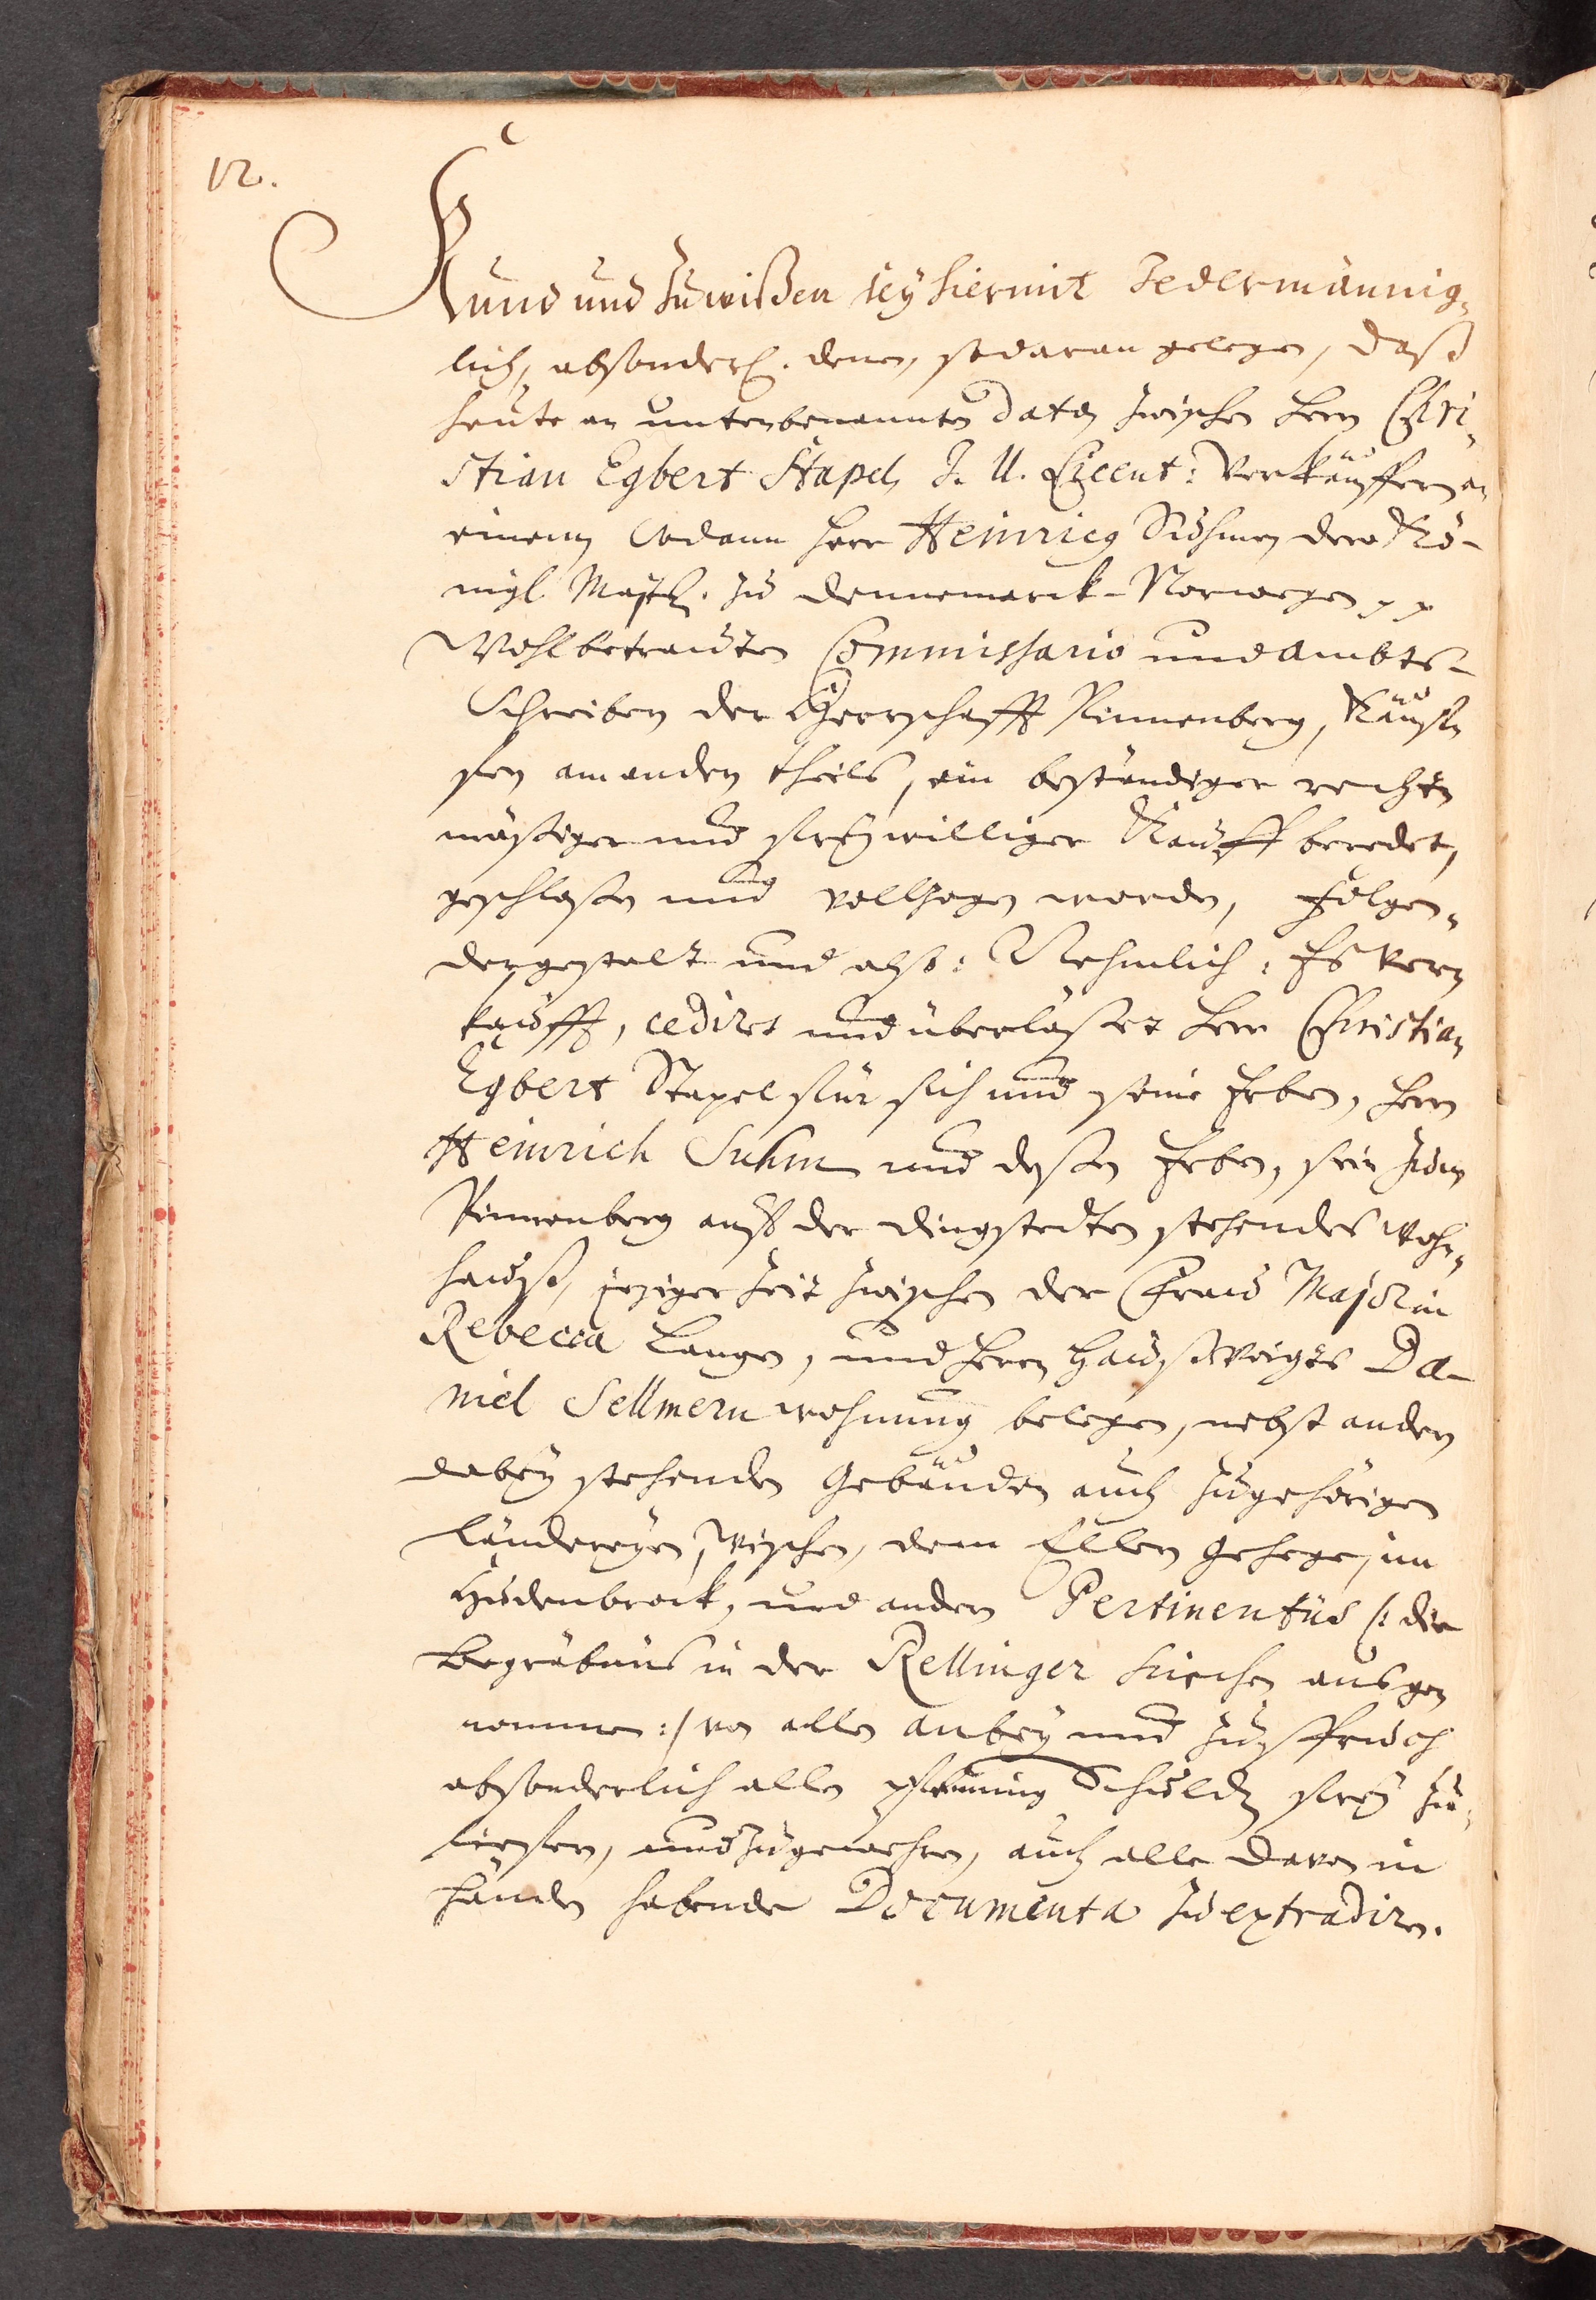 12.
Kund und Zuwißen sey hiermit Jedermännig„
lich, absonderl. denen, so daran gelegen, daß
heute an untenbenannten Dato zwischen Herrn Chri„
stian Egbert Stapel, J. U. Licent: Verkäuffern an
einem Undann Herr Heinrich Suhmen dero Kö-
nigl. Maytt. zu Dennemarck-Norwegen pp
Wohlbetrauten Commissario und Ambts-
Schreiber der Herrschafft Pinnenberg, Käuf„
fern am andern theils, ein beständiger rechts
mäßiger und freywilliger Kauff beredet,
geschloßen und vollzogen worden, Folgen„
dergestalt und also: Nehmlich: Es ver„
kaufft, cediret und überläßet Herr Christian
Egbert Stapel für sich und seine Erben, Herrn
Heinrich Suhm und deßen Erben, sein zum
Pinnenberg auf der Dingstedten stehendes Wohn„
hauß, jeziger Zeit zwischen der Frau Majorin
Rebecca Langen, und Herrn Haußvoigts Da-
niel Sellmern wohnung belegen, nebst andern
dabey stehenden Gebäuden auch zugehörigen
Länderyen, Wischen, dem Ellern Gehege, im
Hudenbrock, und andern Pertinentiis /: die
Begräbnis in der Rellinger Kirchen ausge„
nommen :/ von allen anbey und Zuspruch
absonderlich allen pfenning Schulden frey zu„
liefern, und zugewehren, auch alle davon in
Händen habende Documenta zu extradiren.